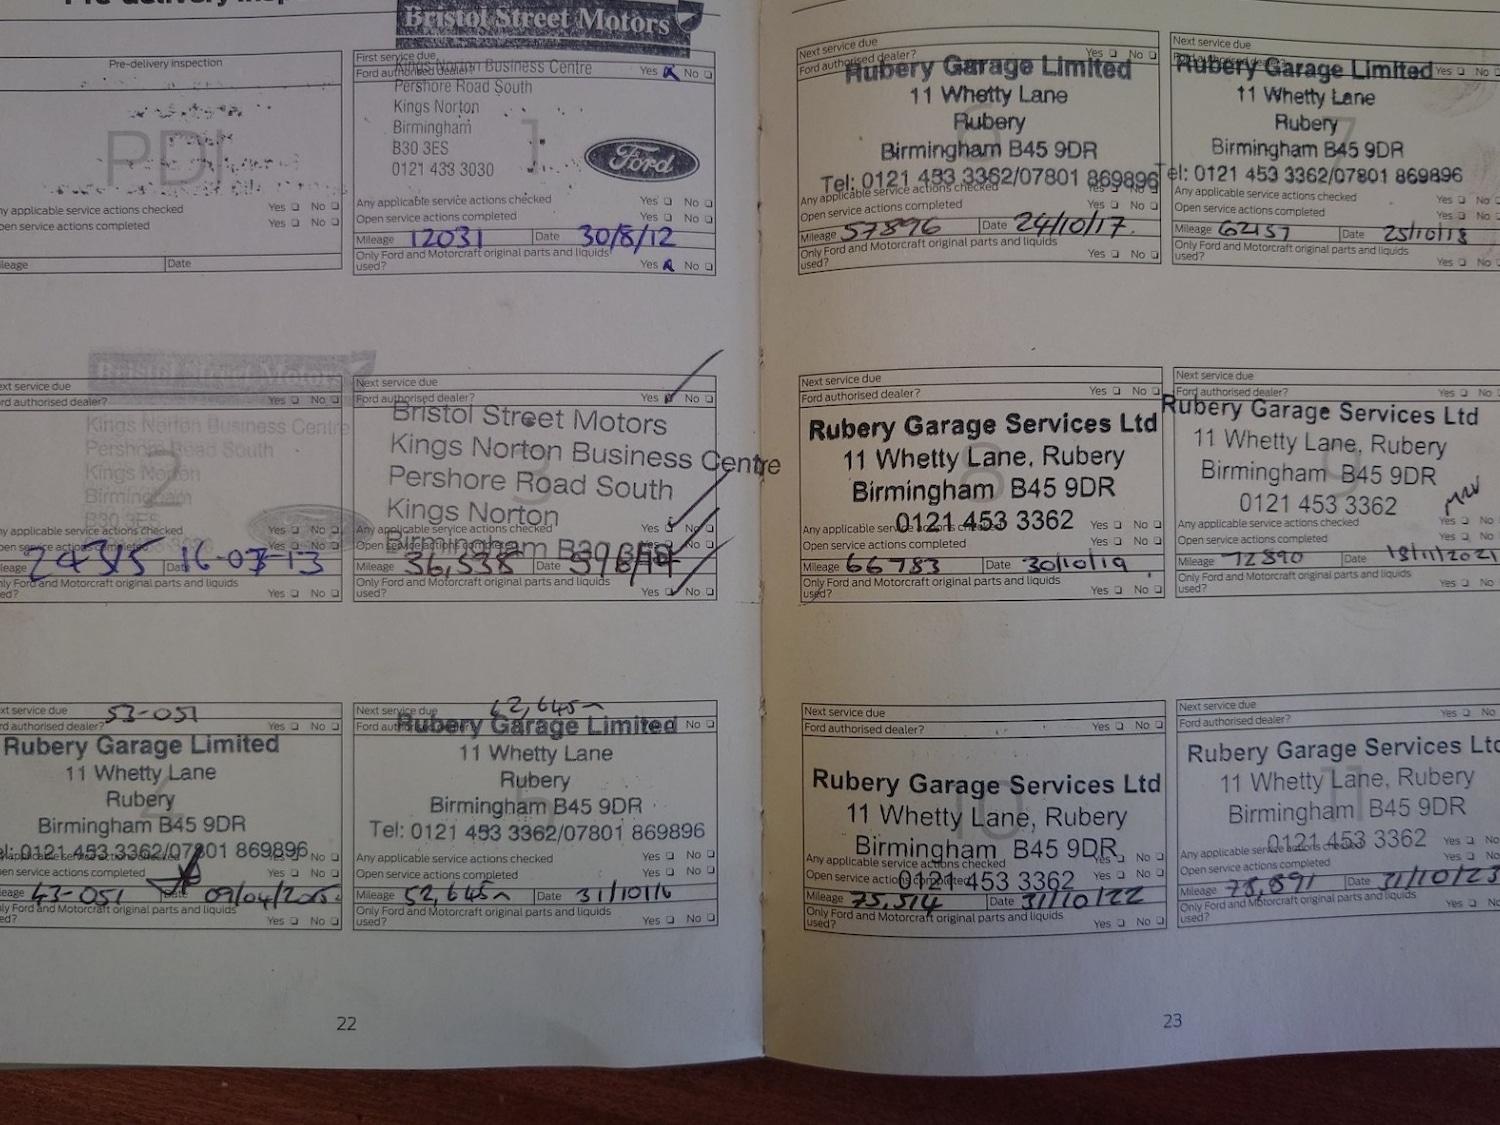 Bristol Street Motors
Pre-delivery inspection
PDI
ny applicable service actions checked Yes No
pen service actions completed Yes No
leage Date
First service due
Ford authorised dealer? Yes No
Kings Norton Business Centre
Pershore Road South
Kings Norton
Birmingham
B30 3ES
0121 433 3030
Ford
1
Any applicable service actions checked Yes No
Open service actions completed Yes No
Mileage 12031 Date 30/8/12
Only Ford and Motorcraft original parts and liquids
used? Yes No
Bristol Street Motors
ext service due
ord authorised dealer? Yes No
Kings Norton Business Centre
Pershore Road South
2
Kings Norton
Birmingham
B30 3ES
ny applicable service actions checked Yes No
pen service actions completed Yes No
leage 24315 Date 16-07-13
nly Ford and Motorcraft original parts and liquids
ed? Yes No
Next service due
Ford authorised dealer? Yes No
Bristol Street Motors
Kings Norton Business Centre
3
Pershore Road South
Kings Norton
Any applicable service actions checked Yes No
Birmingham B30 3ES
Open service actions completed Yes No
Mileage 36,538 Date
Only Ford and Motorcraft original parts and liquids
used? Yes No
ext service due 53-051
rd authorised dealer? Yes No
Rubery Garage Limited
11 Whetty Lane
Rubery
4
Birmingham B45 9DR
el: 0121 453 3362/07801 869896
y applicable service actions checked No
en service actions completed No
eage 43-051 Date 09/04/2015
ly Ford and Motorcraft original parts and liquids
ed? Yes No
Next service due 62,645
Ford authorised dealer? No
Rubery Garage Limited
11 Whetty Lane
Rubery
5
Birmingham B45 9DR
Tel: 0121 453 3362/07801 869896
Any applicable service actions checked Yes No
Open service actions completed Yes No
Mileage 52,645 Date 31/10/16
Only Ford and Motorcraft original parts and liquids
used? Yes No
22
Next service due
Ford authorised dealer? Yes No
Rubery Garage Limited
11 Whetty Lane
Rubery
6
Birmingham B45 9DR
Tel: 0121 453 3362/07801 869896
Any applicable service actions checked Yes No
Open service actions completed
Mileage 57896 Date 24/10/17.
Only Ford and Motorcraft original parts and liquids
used? Yes No
Next service due
Rubery Garage Limited Yes No
11 Whetty Lane
Rubery
7
Birmingham B45 9DR
Tel: 0121 453 3362/07801 869896
Any applicable service actions checked Yes No
Open service actions completed Yes No
Mileage 62157 Date 25/10/18
Only Ford and Motorcraft original parts and liquids
used? Yes No
Next service due
Ford authorised dealer? Yes No
Rubery Garage Services Ltd
11 Whetty Lane, Rubery
8
Birmingham B45 9DR
0121 453 3362
Any applicable service actions checked Yes No
Open service actions completed Yes No
Mileage 66783 Date 30/10/19
Only Ford and Motorcraft original parts and liquids
used? Yes No
Next service due
Ford authorised dealer? Yes No
Rubery Garage Services Ltd
11 Whetty Lane, Rubery
9
Birmingham B45 9DR
0121 453 3362
Any applicable service actions checked Yes No
Open service actions completed Yes No
Mileage 72890 Date 18/11/2021
Only Ford and Motorcraft original parts and liquids
used? Yes No
Next service due
Ford authorised dealer? Yes No
Rubery Garage Services Ltd
10
11 Whetty Lane, Rubery
Birmingham B45 9DR
Any applicable service actions checked Yes No
Open service actions completed Yes No
0121 453 3362
Mileage 75,514 Date 31/10/22
Only Ford and Motorcraft original parts and liquids
used? Yes No
Next service due
Ford authorised dealer? Yes No
Rubery Garage Services Ltd
11 Whetty Lane, Rubery
11
Birmingham B45 9DR
0121 453 3362
Any applicable service actions checked Yes No
Open service actions completed Yes No
Mileage 78,891 Date 31/10/23
Only Ford and Motorcraft original parts and liquids
used? Yes No
23